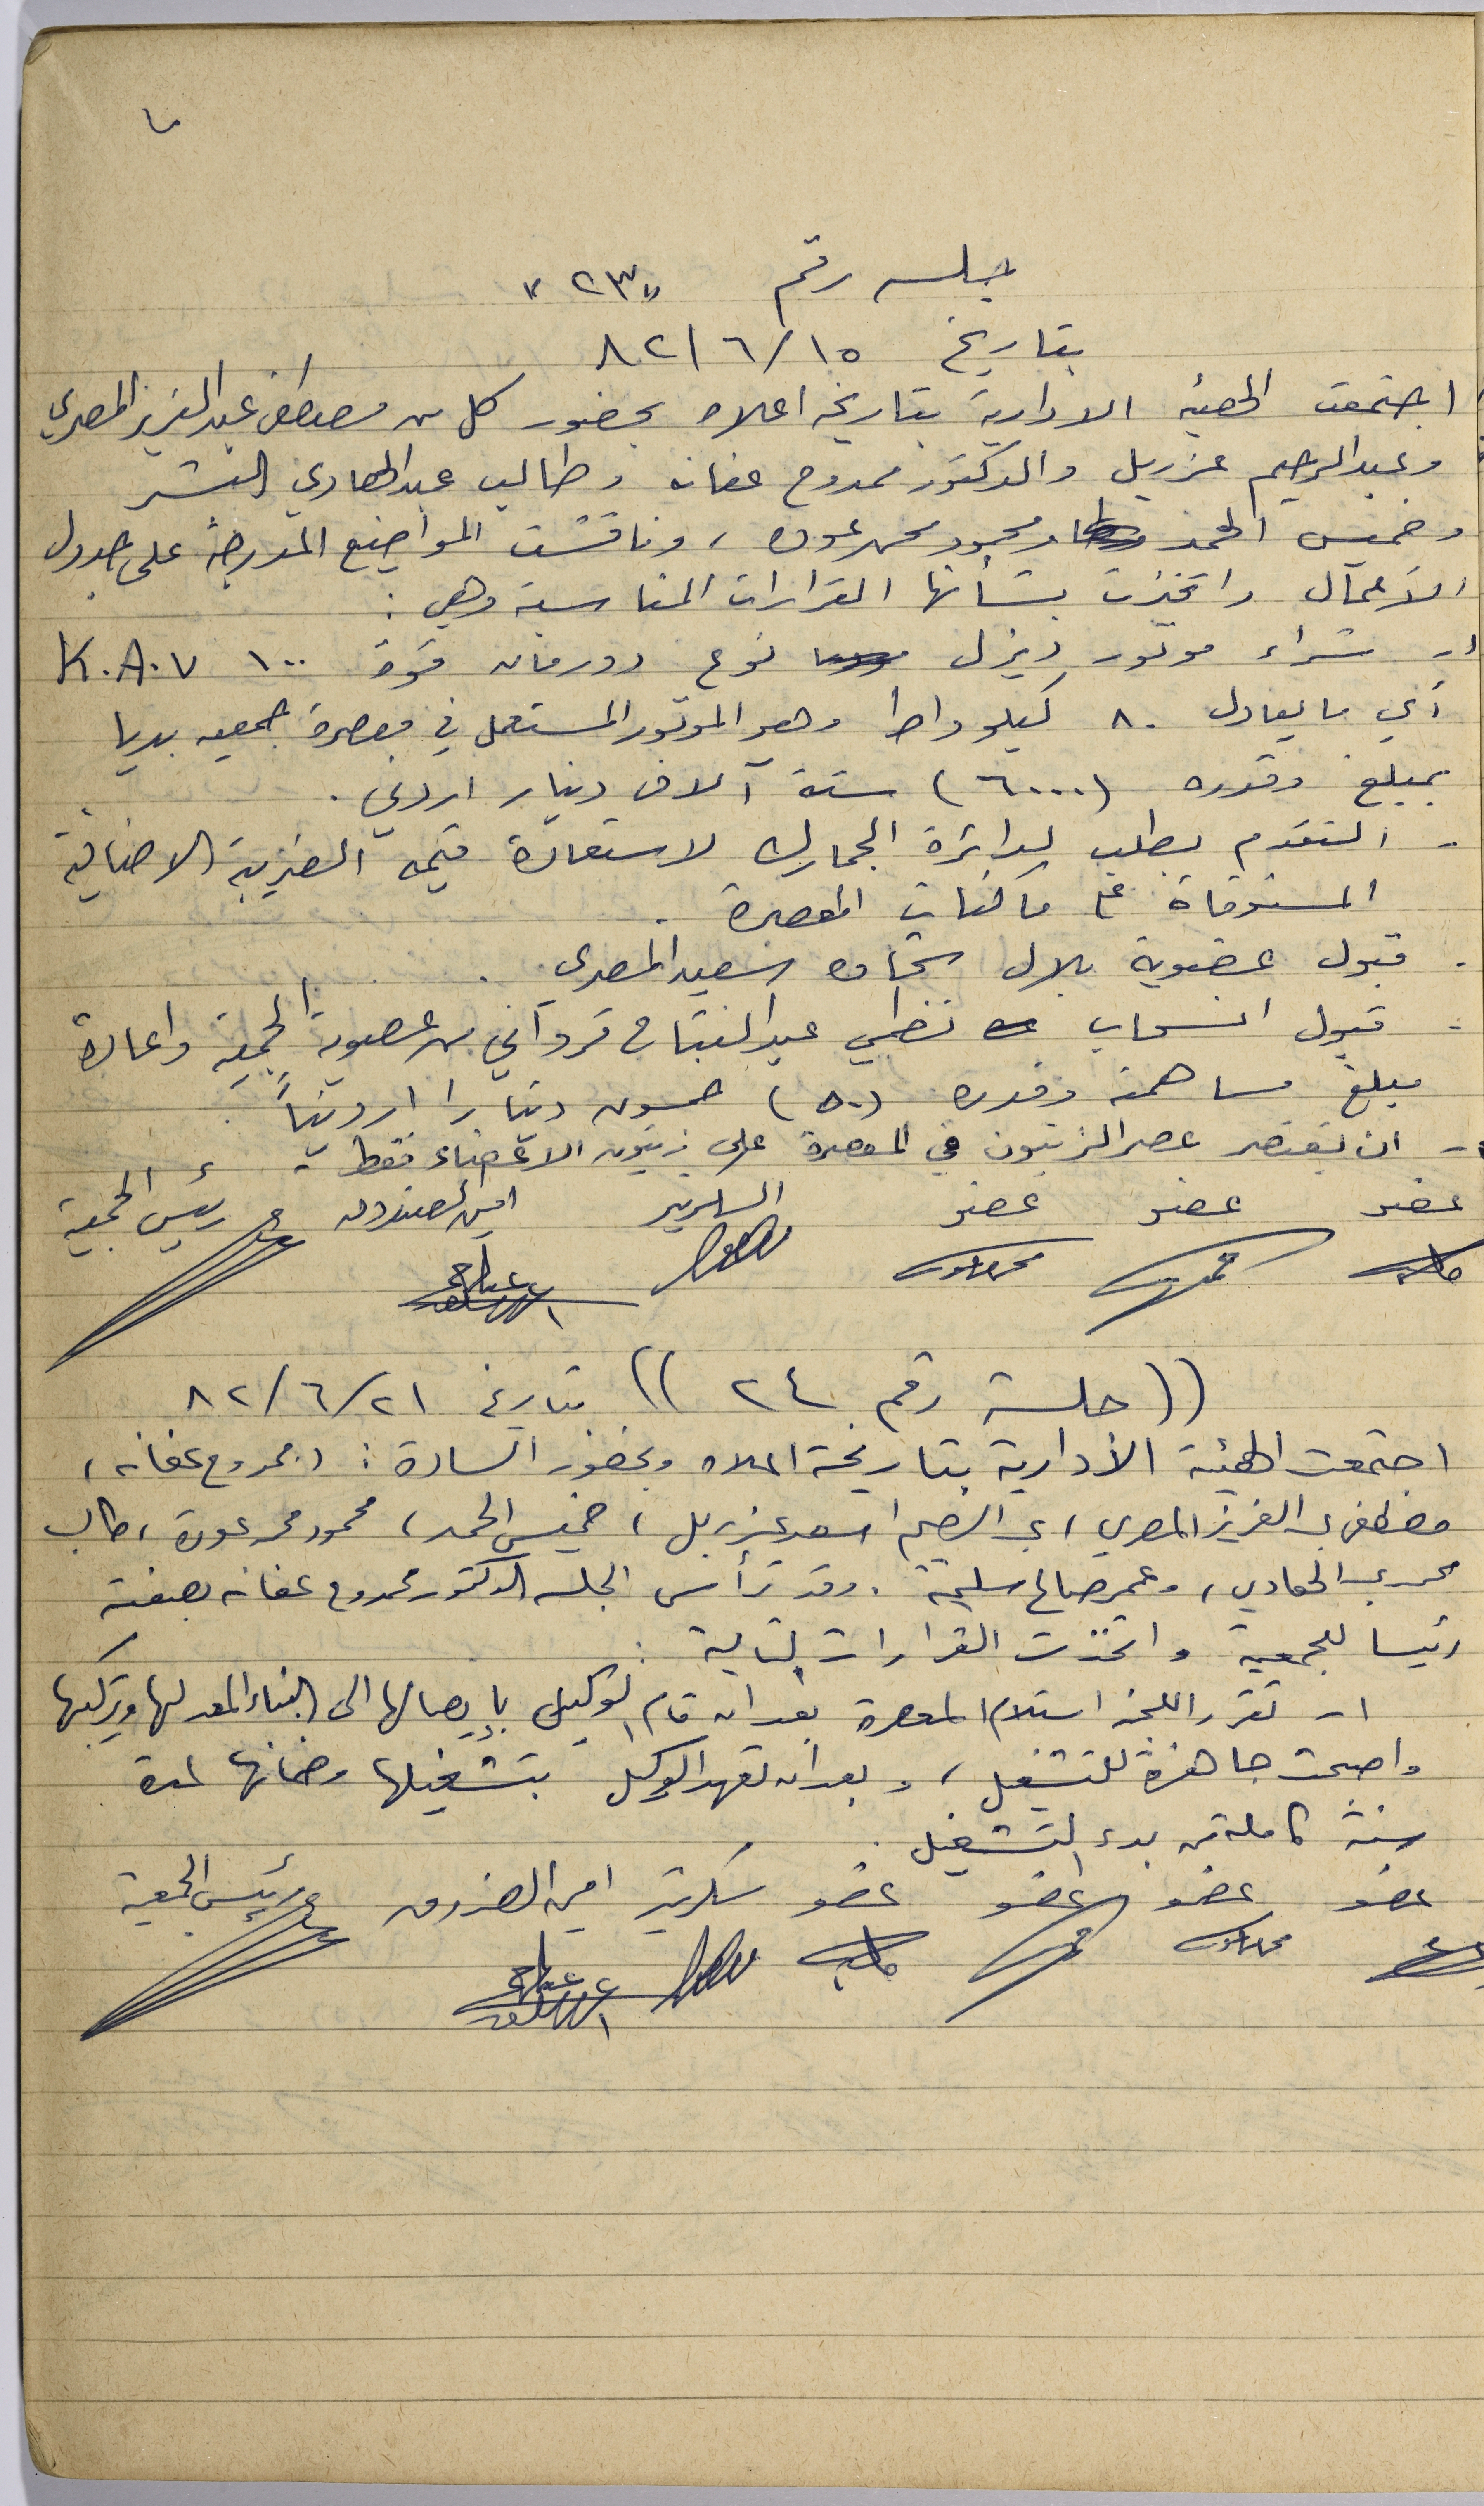 جلسه رقم "٢٣"
بتاريخ ٨٢/٦/١٥
اجتمعت الهيئه الادارية بتاريخه اعلاه بحضور كل من مصطفى عبد العزيز المصري
وعبد الرحيم عزريل والدكتور ممدوح عفانه وطالب عبد الهادي
وخميس الحمد ومحمود محمد عوده ، وناقشت المواضيع المدرجة على جدول
الأعمال واتخذت بشأنها القرارات المناسبة وهي :
١- شراء موتور ديزل نوع دورمان قوة ١٠٠ K.A.V
أي ما يعادل ٨٠ كيلو واط وهو الموتور المستعمل في معصرة جمعيه بديا
بمبلغ وقدره (٦٠٠٠) ستة آلاف دينار اردني .
- التقدم بطلب لدائرة الجمارك لاستعادة قيمه الضريبة الاضافية
المستوفاة على ماكنات المعصرة .
- قبول عضوية بلال سعيد المصري .
- قبول انسحاب نظمي عبد الفتاح قرواني من عضوية الجمعية واعادة
مبلغ مساهمته وقدره (٥٠) خمسون دينارا اردنياً .
- ان يقتصر عصر الزيتون في المعصرة على زيتون الاعضاء فقط .
عضو عضو عضو السكرتير امين الصندوق رئيس الجمعية
((جلسة رقم ٢٤)) بتاريخ ٨٢/٦/٢١
اجتمعت الهيئة الأدارية بتاريخه اعلاه وبحضور السادة : د. ممدوح عفانه ،
مصطفى عبد العزيز المصري ، عبد الرحيم اسعد عزريل ، خميس الحمد ، محمود محمد عودة ، طالب
محمد عبد الهادي ، وعمر صالح سليمة . وقد ترأس الجلسه الدكتور ممدوح عفانه بصفته
رئيسا للجمعية واتخذت القرارات التالية :
١- تقرر اللجنه استلام المعصرة بعد ان قام الوكيل بإيصالها الى البناء المعد لها وتركيبها
واصبحت جاهزة للتشغيل ، وبعد ان تعهد الوكيل بتشغيلها وضمانها لمدة
سنة كاملة من بدء التشغيل .
عضو عضو عضو عضو سكرتير امين الصندوق رئيس الجمعية